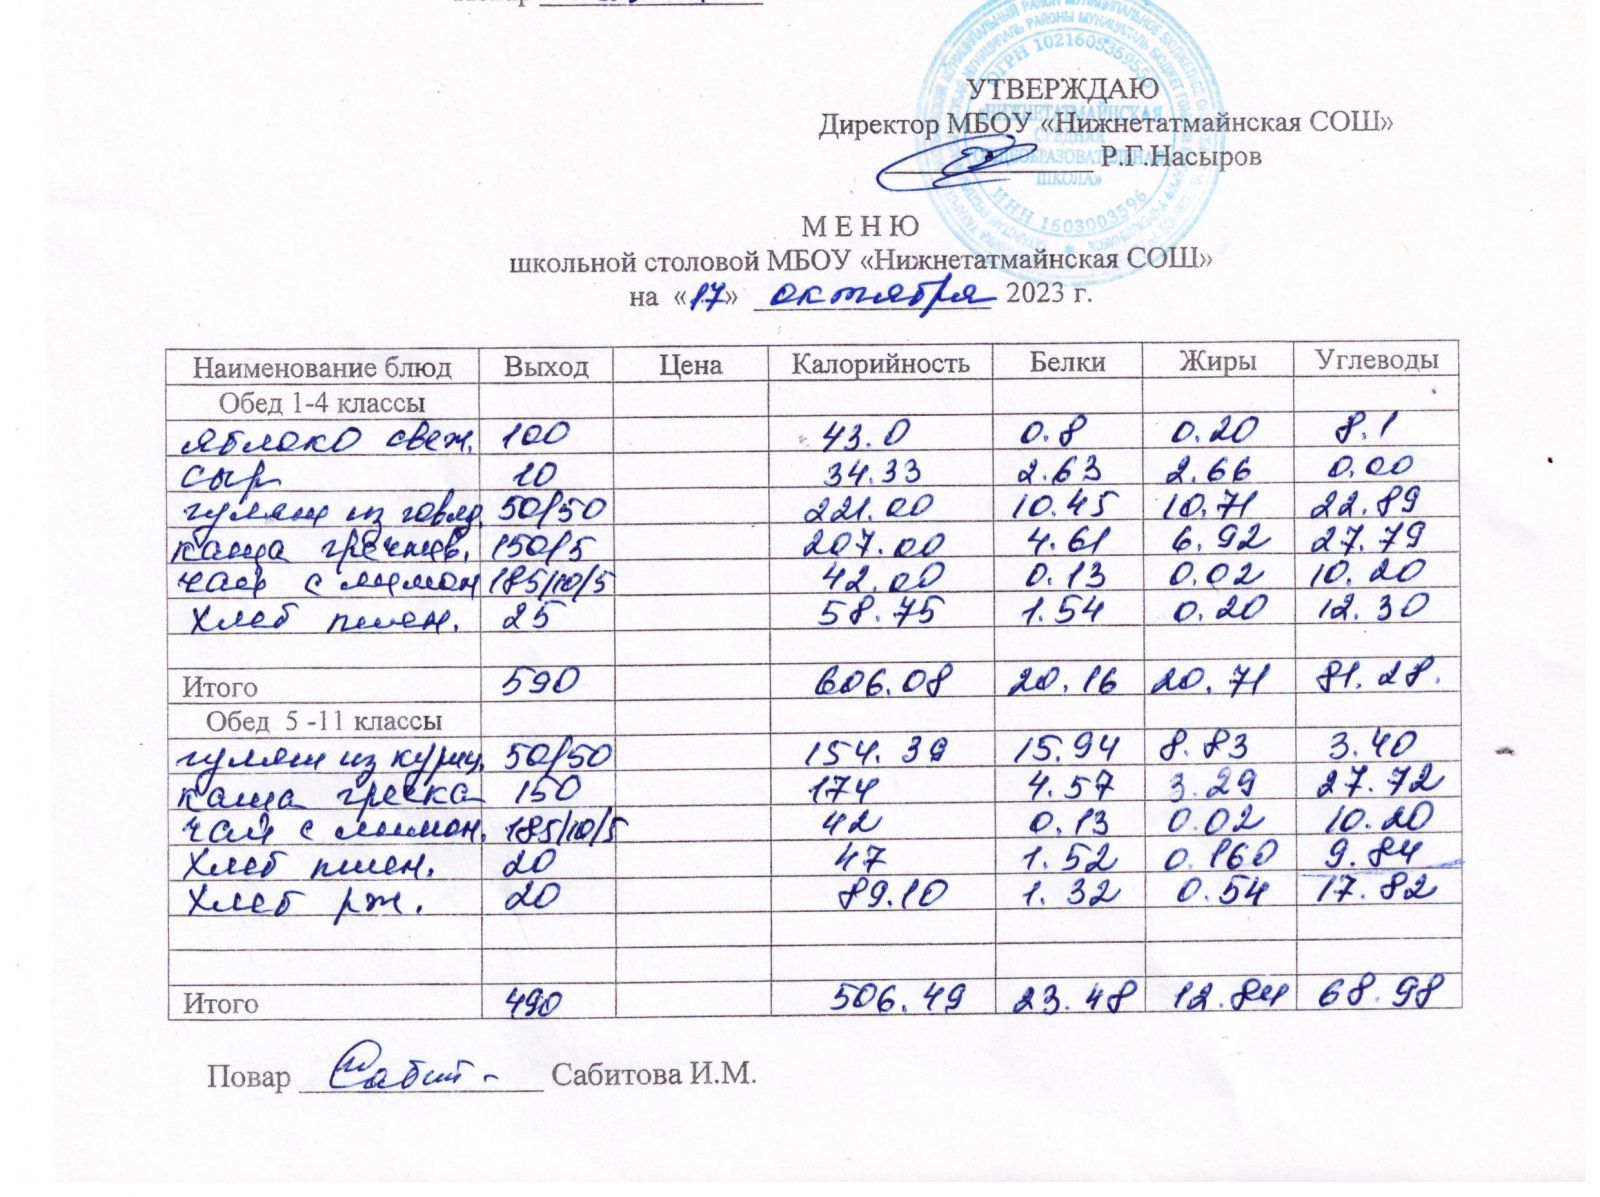 УТВЕРЖДАЮ
Директор МБОУ «Нижнетатмайнская СОШ»
Р.Г.Насыров
ОГРН
«НИЖНЕТАТМАЙНСКАЯ
СРЕДНЯЯ
ОБЩЕОБРАЗОВАТЕЛЬНАЯ
ШКОЛА»
ИНН 1603003596
М Е Н Ю
школьной столовой МБОУ «Нижнетатмайнская СОШ»
на «17» октября 2023 г.
Наименование блюд Выход Цена Калорийность Белки Жиры Углеводы
Обед 1-4 классы
яблоко свеж. 100 43.0 0.8 0.20 8.1
сыр 10 34.33 2.63 2.66 0.00
гуляш из говяд. 50/50 221.00 10.45 10.71 22.89
каша гречнев. 150/5 207.00 4.61 6.92 27.79
чай с лимон 185/10/5 42.00 0.13 0.02 10.20
Хлеб пшен. 25 58.75 1.54 0.20 12.30
Итого 590 606.08 20.16 20.71 81.28.
Обед 5 -11 классы
гуляш из куриц. 50/50 154.39 15.94 8.83 3.40
каша гречка 150 174 4.57 3.29 27.72
чай с лимон. 185/10/5 42 0.13 0.02 10.20
Хлеб пшен. 20 47 1.52 0.160 9.84
Хлеб рж. 20 89.10 1.32 0.54 17.82
Итого 490 506.49 23.48 12.84 68.98
Повар Сабит- Сабитова И.М.